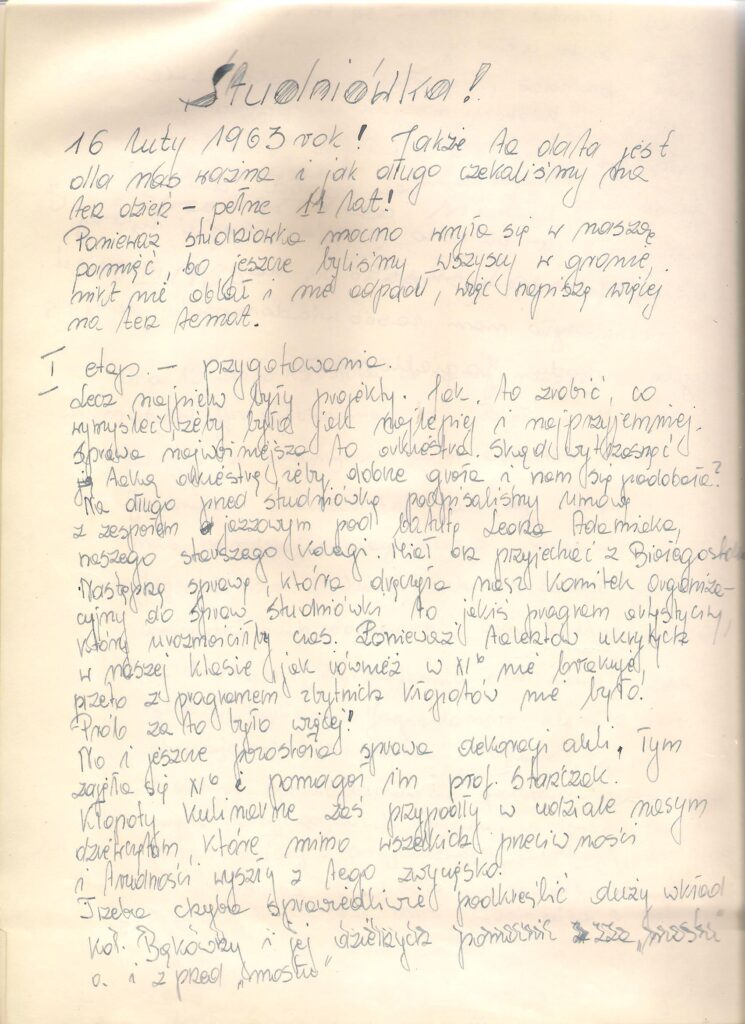 Studniówka!
16 luty 1963 rok! Jakże ta data jest
dla nas ważna i jak długo czekaliśmy na
ten dzień – pełne 11 lat!
Ponieważ studniówka mocno wryła się w naszą
pamięć, bo jeszcze byliśmy wszyscy w gronie,
nikt nie oblał i nie odpadł, więc napiszę więcej
na ten temat.
I etap. – przygotowania.
Lecz najpierw były projekty. Jak to zrobić, co
wymyśleć, żeby było jak najlepiej i najprzyjemniej.
Sprawa najważniejsza to orkiestra. Skąd wytrzasnąć
taką orkiestrę, żeby dobrze grała i nam się podobała?
Na długo przed studniówką podpisaliśmy umowę
z zespołem jazzowym pod batutą Leona Adamieka,
naszego starszego kolegi. Miał on przyjechać z Białegostoku
Następną sprawą, która dręczyła nasz Komitet Organiza-
cyjny do spraw Studniówki to jakiś program artystyczny,
który urozmaiciłby czas. Ponieważ talentów ukrytych
w naszej klasie, jak również w XIb nie brakuje,
przeto z programem zbytnich kłopotów nie było.
Prób za to było więcej!
No i jeszcze pozostała sprawa dekoracji auli. Tym
zajęła się XIb i pomagał im prof. Starczak.
Kłopoty kulinarne zaś przypadły w udziale naszym
dziewczętom, które mimo wszelkich przeciwności
i trudności wyszły z tego zwycięsko.
Trzeba chyba sprawiedliwie podkreślić duży wkład
kol. Bąkówny i jej dzielnych pomocnic zza „mostu"
o. i z przed „mostu"